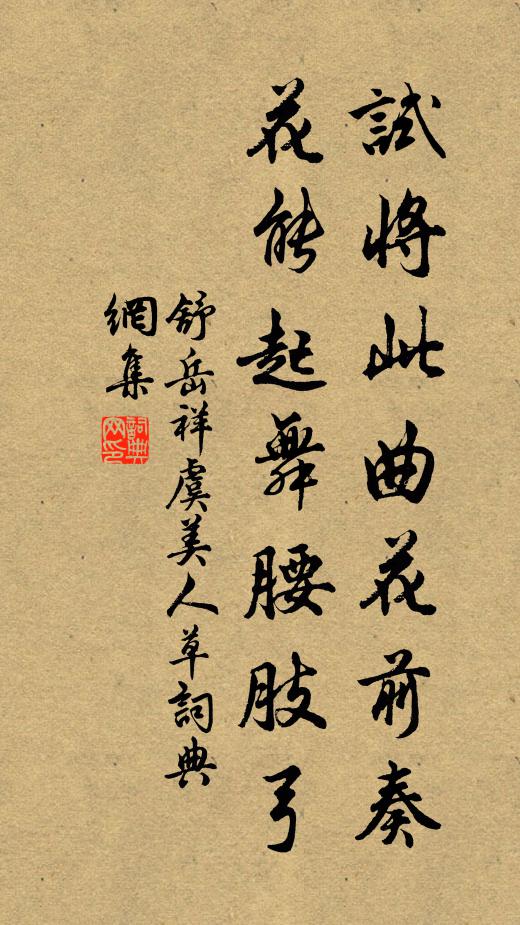 試將此曲花前奏
花能起舞腰肢弓
舒岳祥虞美人草詞典
網集
詞典
网印